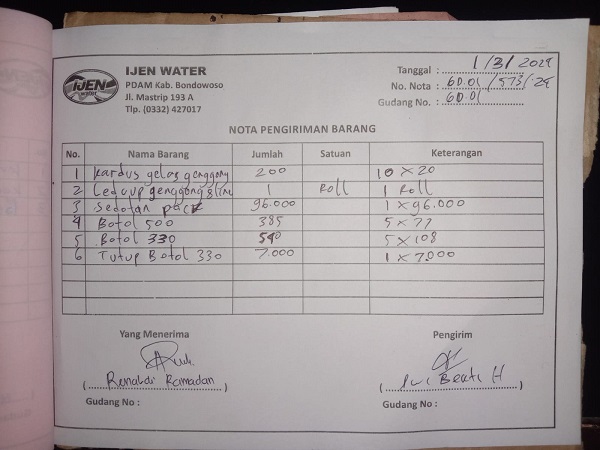 IJEN WATER
IJEN WATER
PDAM Kab. Bondowoso
Jl. Mastrip 193 A
Tlp. (0332) 427017
Tanggal : 1/3/2024
No. Nota : 60.01/573/24
Gudang No. : 60.01
NOTA PENGIRIMAN BARANG
No. Nama Barang Jumlah Satuan Keterangan
1 Kardus gelas genggong 200 10 x 20
2 genggong 1 Roll 1 Roll
3 Sedotan pack 96.000 1 x 96.000
4 Botol 500 385 5 x 77
5 Botol 330 540 5 x 108
6 Tutup Botol 330 7.000 1 x 7.000
Yang Menerima Pengirim
(Renaldi Ramadan) (H)
Gudang No : Gudang No :